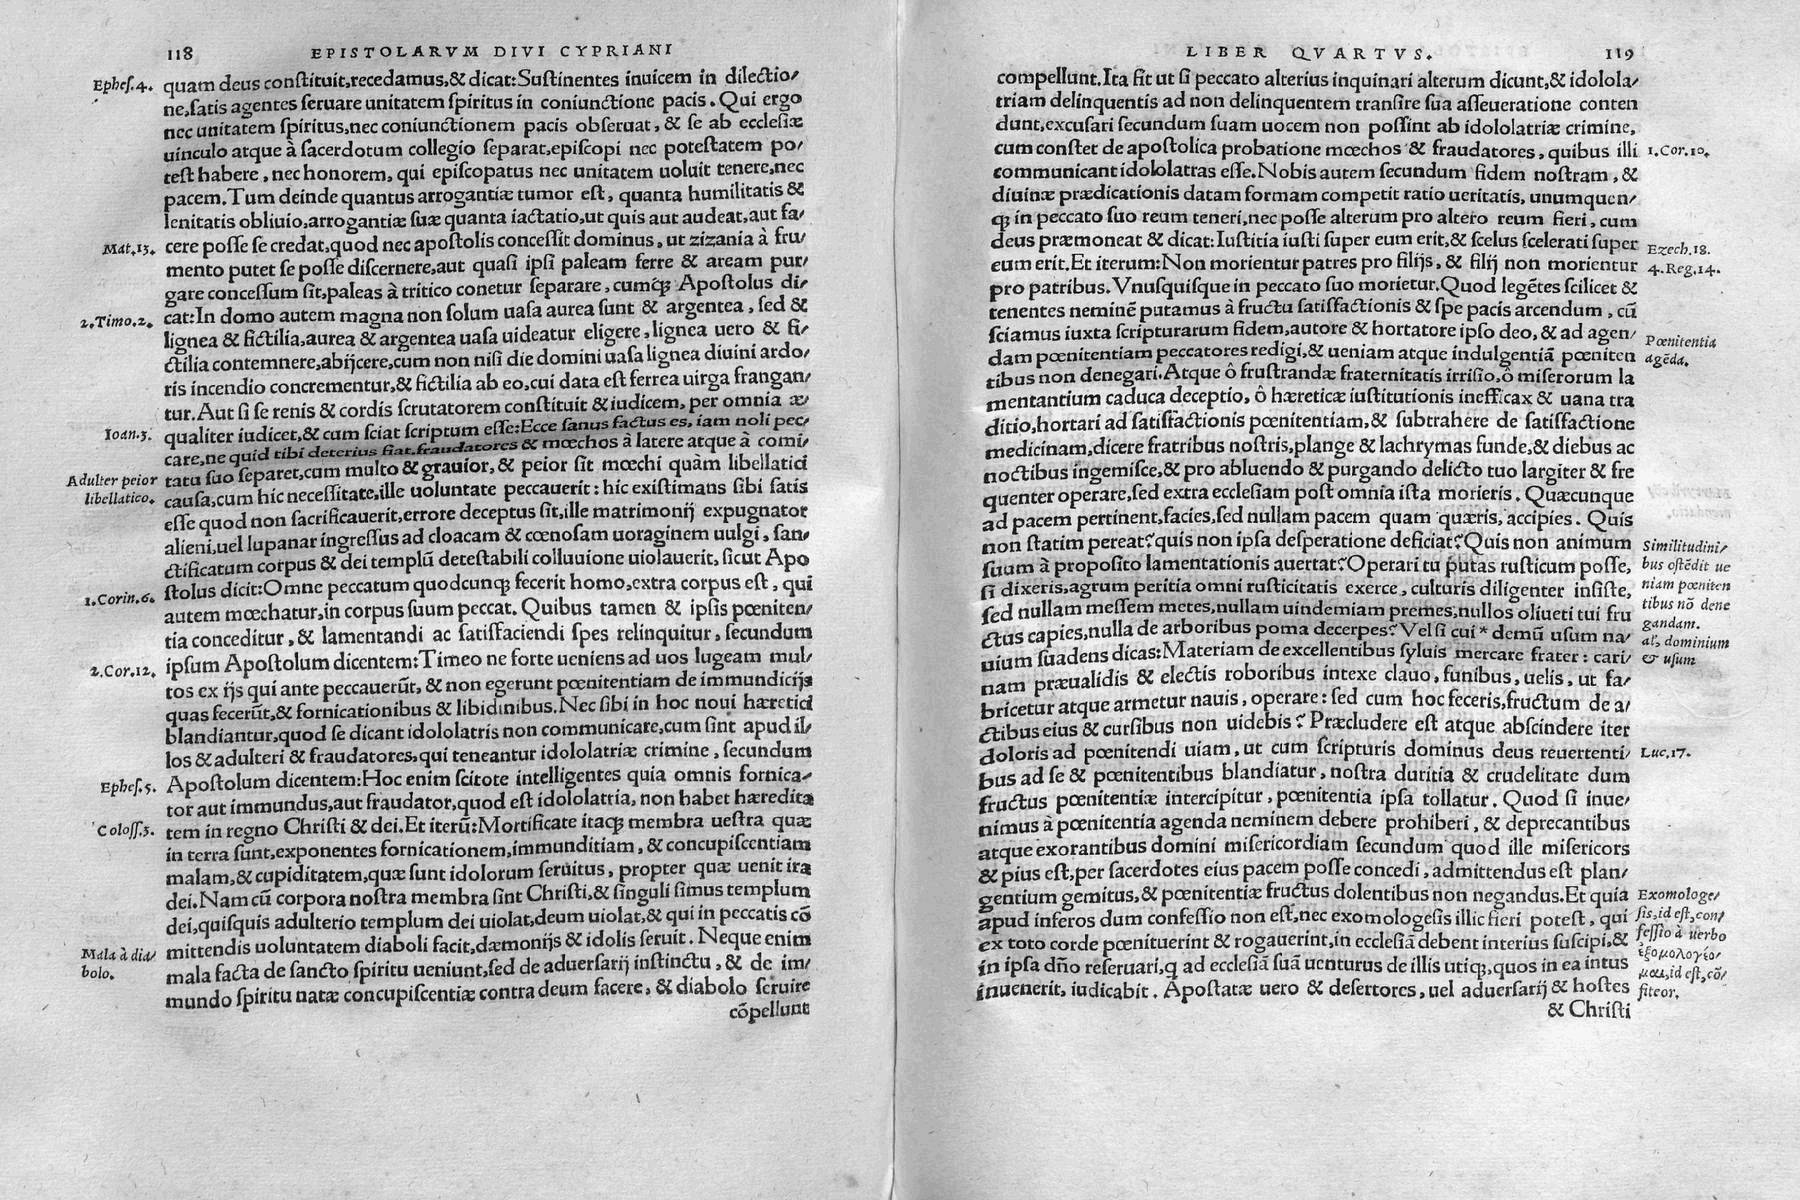 118 EPISTOLARVM DIVI CYPRIANI
Ephes.4. quam deus constituit,recedamus,& dicat:Sustinentes inuicem in dilectio/
ne,satis agentes seruare unitatem spiritus in coniunctione pacis. Qui ergo
nec unitatem spiritus,nec coniunctionem pacis obseruat, & se ab ecclesiæ
uinculo atque à sacerdotum collegio separat,episcopi nec potestatem po/
test habere, nec honorem, qui episcopatus nec unitatem uoluit tenere,nec
pacem. Tum deinde quantus arrogantiæ tumor est, quanta humilitatis &
lenitatis obliuio,arrogantiæ suæ quanta iactatio,ut quis aut audeat,aut fa/
Mat.13. cere posse se credat,quod nec apostolis concessit dominus, ut zizania à fru/
mento putet se posse discernere,aut quasi ipsi paleam ferre & aream pur/
gare concessum sit,paleas à tritico conetur separare, cumqȝ Apostolus di/
2.Timo.2. cat:In domo autem magna non solum uasa aurea sunt & argentea, sed &
lignea & fictilia,aurea & argentea uasa uideatur eligere, lignea uero & fi/
ctilia contemnere,abijcere,cum non nisi die domini uasa lignea diuini ardo/
ris incendio concrementur,& fictilia ab eo,cui data est ferrea uirga frangan/
tur. Aut si se renis & cordis scrutatorem constituit & iudicem, per omnia æ/
Ioan.5. qualiter iudicet,& cum sciat scriptum esse:Ecce sanus factus es, iam noli pec/
care,ne quid tibi deterius fiat,fraudatores & mœchos à latere atque à comi/
Adulter peior tatu suo separet,cum multo & grauior, & peior sit mœchi quàm libellatici
libellatico. causa,cum hic necessitate,ille uoluntate peccauerit: hic existimans sibi satis
esse quod non sacrificauerit,errore deceptus sit,ille matrimonij expugnator
alieni,uel lupanar ingressus ad cloacam & cœnosam uoraginem uulgi, san/
ctificatum corpus & dei templū detestabili colluuione uiolauerit, sicut Apo
1.Corin.6. stolus dicit:Omne peccatum quodcunqȝ fecerit homo,extra corpus est, qui
autem mœchatur,in corpus suum peccat. Quibus tamen & ipsis pœniten/
tia conceditur, & lamentandi ac satisfaciendi spes relinquitur, secundum
2.Cor.12. ipsum Apostolum dicentem:Timeo ne forte ueniens ad uos lugeam mul/
tos ex ijs qui ante peccauerūt, & non egerunt pœnitentiam de immundicijs
quas fecerūt,& fornicationibus & libidinibus. Nec sibi in hoc noui hæretici
blandiantur,quod se dicant idololatris non communicare,cum sint apud il/
los & adulteri & fraudatores,qui teneantur idololatriæ crimine, secundum
Ephes.5. Apostolum dicentem:Hoc enim scitote intelligentes quia omnis fornica/
tor aut immundus,aut fraudator,quod est idololatria, non habet hæredita
Coloss.3. tem in regno Christi & dei.Et iterū:Mortificate itaqȝ membra uestra quæ
in terra sunt,exponentes fornicationem,immunditiam, & concupiscentiam
malam,& cupiditatem,quæ sunt idolorum seruitus, propter quæ uenit ira
dei. Nam cū corpora nostra membra sint Christi,& singuli simus templum
dei,quisquis adulterio templum dei uiolat,deum uiolat,& qui in peccatis cō
Mala à dia/ mittendis uoluntatem diaboli facit,dæmonijs & idolis seruit. Neque enim
bolo. mala facta de sancto spiritu ueniunt,sed de aduersarij instinctu, & de im/
mundo spiritu natæ concupiscentiæ contra deum facere, & diabolo seruire
cōpellunt
LIBER QVARTVS. 119
compellunt.Ita fit ut si peccato alterius inquinari alterum dicunt,& idolola/
triam delinquentis ad non delinquentem transire sua asseueratione conten
dunt,excusari secundum suam uocem non possint ab idololatriæ crimine,
cum constet de apostolica probatione mœchos & fraudatores, quibus illi 1.Cor.10.
communicant idololatras esse. Nobis autem secundum fidem nostram, &
diuinæ prædicationis datam formam competit ratio ueritatis, unumquen/
qȝ in peccato suo reum teneri,nec posse alterum pro altero reum fieri, cum
deus præmoneat & dicat:Iustitia iusti super eum erit,& scelus scelerati super Ezech.18.
eum erit. Et iterum: Non morientur patres pro filijs, & filij non morientur 4.Reg.14.
pro patribus. Vnusquisque in peccato suo morietur. Quod legētes scilicet &
tenentes neminē putamus à fructu satisfactionis & spe pacis arcendum, cū
sciamus iuxta scripturarum fidem,autore & hortatore ipso deo, & ad agen/ Pœnitentia
dam pœnitentiam peccatores redigi,& ueniam atque indulgentiā pœniten agēda.
tibus non denegari.Atque ô frustrandæ fraternitatis irrisio,ô miserorum la
mentantium caduca deceptio, ô hæreticæ iustitutionis inefficax & uana tra
ditio,hortari ad satisfactionis pœnitentiam,& subtrahere de satisfactione
medicinam,dicere fratribus nostris,plange & lachrymas funde,& diebus ac
noctibus ingemisce,& pro abluendo & purgando delicto tuo largiter & fre
quenter operare,sed extra ecclesiam post omnia ista morieris. Quæcunque
ad pacem pertinent,facies,sed nullam pacem quam quæris, accipies. Quis
non statim pereat? quis non ipsa desperatione deficiat? Quis non animum Similitudini/
suum à proposito lamentationis auertat? Operari tu putas rusticum posse, bus ostēdit ue
si dixeris,agrum peritia omni rusticitatis exerce, culturis diligenter insiste, niam pœniten
sed nullam messem metes,nullam uindemiam premes,nullos oliueti tui fru tibus nō dene
ctus capies,nulla de arboribus poma decerpes? Vel si cui * demū usum na/ gandam.
uium suadens dicas:Materiam de excellentibus syluis mercare frater: cari/ al', dominium & usum
nam præualidis & electis roboribus intexe clauo, funibus, uelis, ut fa/
bricetur atque armetur nauis, operare: sed cum hoc feceris,fructum de a/
ctibus eius & cursibus non uidebis? Præcludere est atque abscindere iter
doloris ad pœnitendi uiam, ut cum scripturis dominus deus reuertenti/ Luc.17.
bus ad se & pœnitentibus blandiatur, nostra duritia & crudelitate dum
fructus pœnitentiæ intercipitur, pœnitentia ipsa tollatur. Quod si inue/
nimus à pœnitentia agenda neminem debere prohiberi, & deprecantibus
atque exorantibus domini misericordiam secundum quod ille misericors
& pius est,per sacerdotes eius pacem posse concedi, admittendus est plan/
gentium gemitus,& pœnitentiæ fructus dolentibus non negandus.Et quia Exomologe/
apud inferos dum confessio non est,nec exomologesis illic fieri potest, qui sis,id est,con/
ex toto corde pœnituerint & rogauerint,in ecclesiā debent interius suscipi,& fessio à uerbo
in ipsa dño reseruari,q ad ecclesiā suā uenturus de illis utiqȝ,quos in ea intus ἐξομολογέο/
inuenerit, iudicabit. Apostatæ uero & desertores, uel aduersarij & hostes μαι,id est,cō/
fiteor.
& Christi